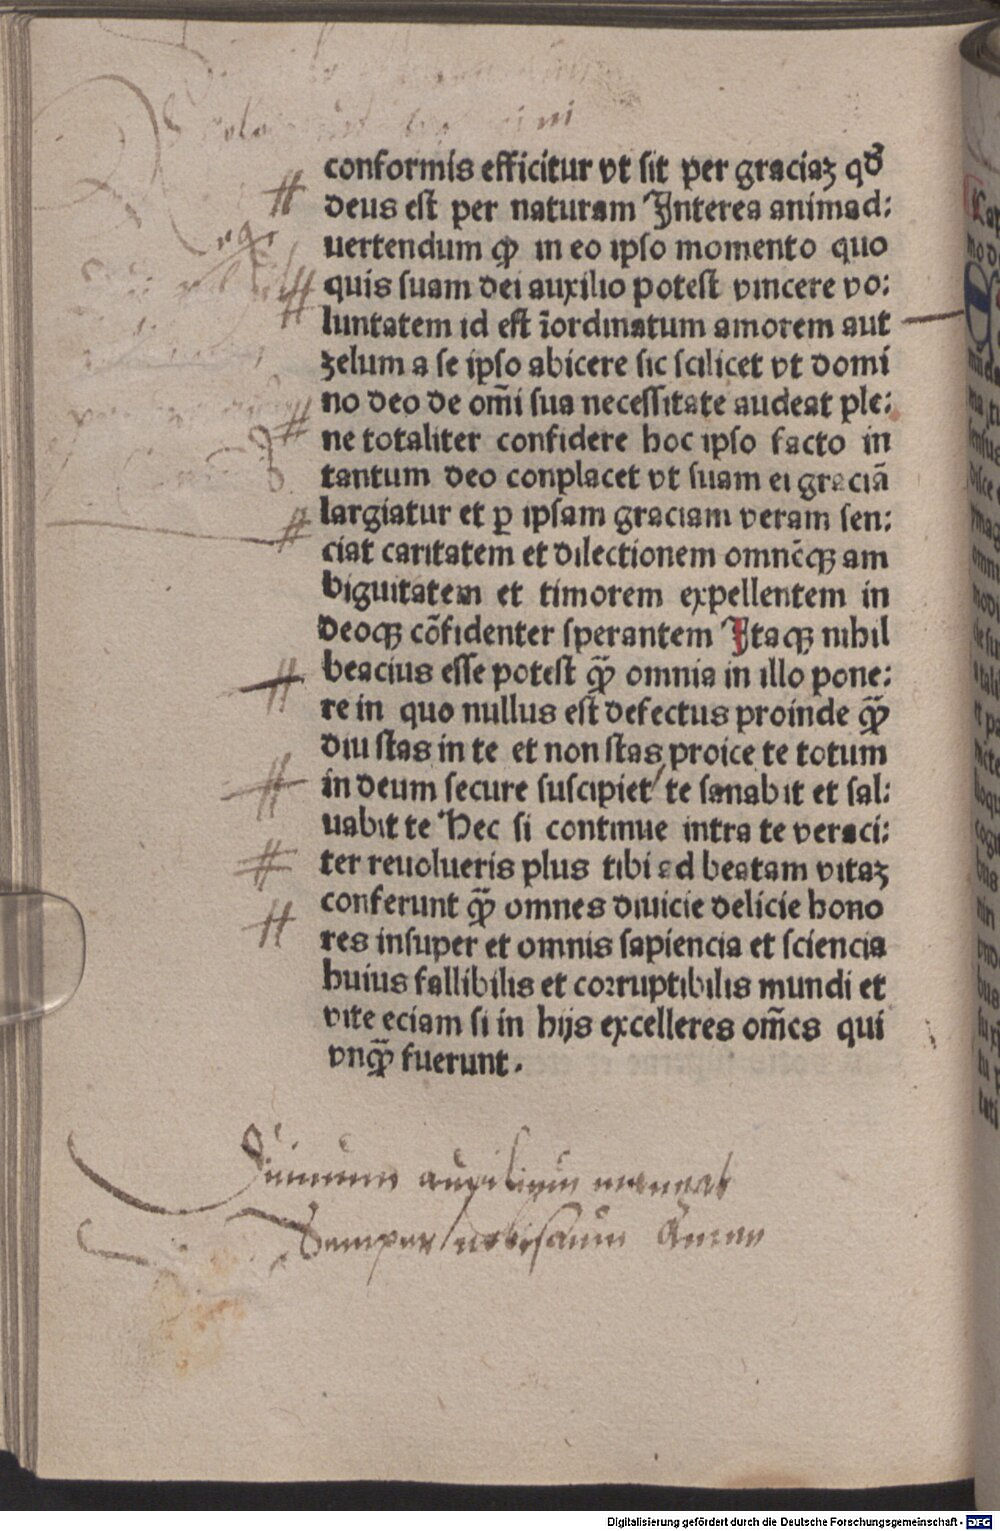 conformis efficitur vt sit per graciaꝫ qd̕
deus est per naturam Interea animad:
uertendum ꝙ in eo ipso momento quo
quis suam dei auxilio potest vincere vo:
luntatem id est īordinatum amorem aut
zelum a se ipso abicere sic scilicet vt domi
no deo de om̄i sua necessitate audeat ple:
ne totaliter confidere hoc ipso facto in
tantum deo conplacet vt suam ei graciā
largiatur et ꝑ ipsam graciam veram sen:
ciat caritatem et dilectionem omnēqꝫ am
biguitatem et timorem expellentem in
deoqꝫ cōfidenter sperantem Itaqꝫ nihil
beacius esse potest ꝙ̄ omnia in illo pone:
re in quo nullus est defectus proinde ꝙ̄
diu stas in te et non stas proice te totum
in deum secure suscipiet / te sanabit et sal:
uabit te Hec si continue intra te veraci:
ter reuolueris plus tibi ad beatam vitaꝫ
conferunt ꝙ̄ omnes diuicie delicie hono
res insuper et omnis sapiencia et sciencia
huius fallibilis et corruptibilis mundi et
vite eciam si in hijs excelleres om̄es qui
vnꝙ̄ fuerunt.
Diuinum auxilium maneat
Semper nobiscum Amen
Digitalisierung gefördert durch die Deutsche Forschungsgemeinschaft - DFG